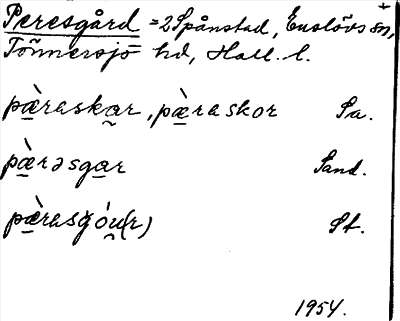 Peresgård = 2 Spånstad, Enslövs sn,
Tönnersjö hd, Hall. l.
pæ̀raskar, pæ̀raskor Sa.
pæ̀rəsgar Sand.
pæ̀rasğóu(r) St.
1954.